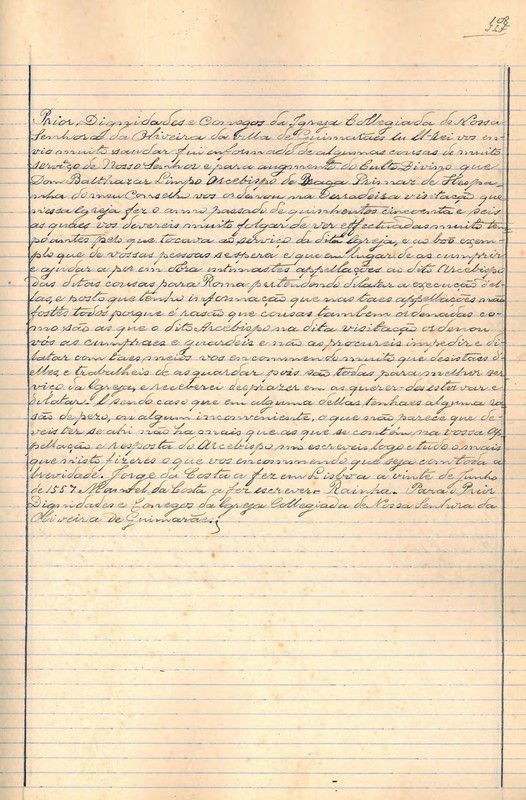 Prior, Dignidades e Conegos da Igreja Collegiada de Nossa
Senhora da Oliveira da Villa de Guimarães Eu El Rei vos en-
vio muito saudar fui informado de algumas cousas de muito
serviço de Nosso Senhor e para augmento do Culto Divino que
Dom Balthazar Limpo Arcebispo de Braga Primaz de Hespa
nha do meu Conselho vos ordenou na derradeira visitação que
nessa Igreja fez o anno passado de quinhentos cincoenta e seis
as quaes vos devereis muito folgar de ver effectuadas muito tem
po antes pelo que tocava ao serviço da dita Igreja, e ao bom exem-
plo que de vossas pessoas se espera e que em lugar de as cumprir
e ajudar a por em obra intimastes appellações ao dito Arcebispo
das ditas cousas para Roma pertendendo dilatar a execução del-
las, e posto que tenho informação que nas taes appellações não
fostes todos porque é rasão que cousas tambem ordenadas co-
mo são as que o dito Arcebispo na dita visitação ordenou
vós as cumpraes e guardeis e não as procureis impedir e di-
latar com taes meios vos encommendo muito que desistaes d'-
elles e trabalheis de as guardar pois são todas para melhor ser
viço da Igreja, e receberei desprazer em as querer-des estorvar e
dilatar. E sendo caso que em alguma dellas tenhaes alguma ra
são de pero, ou algum inconveniente, o que não parece que de-
veis ter se ahi não ha mais que as que se contém na vossa ap-
pellação e resposta do Arcebispo m'o escreveis logo e tudo o mais
que nisto fizeres o que vos encommendo que seja com toda a
brevidade. Jorge da Costa a fez em Lisboa a vinte de Junho
de 1557 Manoel da Costa a fez escrever. Rainha. Para o Prior
Dignidades e Conegos da Igreja Collegiada de Nossa Senhora da
Oliveira de Guimarães.